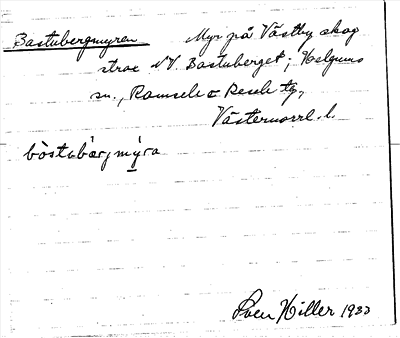 Bastubergmyren Myr på Västby skog
strax NV. Bastuberget; Helgums
sn., Ramsele o Resele tg,
Västernorrl. l.
bòstubærjmýra
Sven Hiller 1933